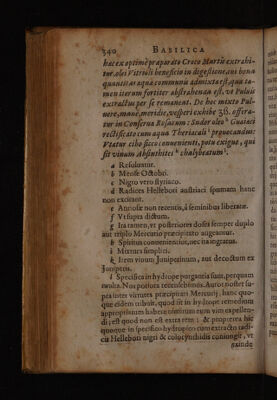 340 BASILICA
hac ex optimè præparato Croco Martis extrahi-
tur. olei Vitrioli beneficio in digestione, aut bona
quantitas aqua communis admixta est, qua ta-
men iterum fortiter abstrahenda est, ut Puluis
extractus per se remaneat. De hoc mixto Pul-
uere, mane, meridie, vesperi exhibe offira-
tur in Conserua Rosarum: Sudor oleo Guaiaci
rectificato cum aqua Theriacali prouocandus:
Vtatur cibo sicco conuenienti, potu exiguo, qui
sit vinum Absinthites chalybeatum.
a Resoluatur.
b Mense Octobri.
c Nigro vero styriaco.
d Radices Hellebori austriaci spumam hanc
non excitant.
e Annosæ non recentis, à seminibus liberatæ.
f Vt supra dictum.
g Ita tamen, vt posteriores dosis semper duplo
aut triplo Mercurio præcipitato augeantur.
h Spiritus convenientior, nec ita ingratus.
i Mixturæ simplici.
k Item vinum Juniperinum, aut decoctum ex
Juniperis.
Specifica in hydrope purgantia sunt, perquam
multa. Nos potiora recensebimus. Autor noster su-
pra inter virtutes præcipitati Mercurij, hanc quo-
que eidem tribuit, quod sit in hydrope remedium
appropriatum habens tum eum vim expellen-
di; est quod non est extra rem; & propterea hic
quoque in specifico hydropico cum extracto radi-
cis Hellebori nigri & coloquinthidis coniungit, vt
exinde